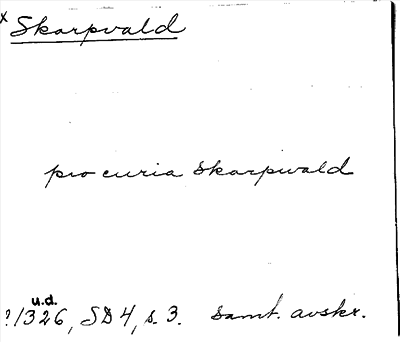 x Skarpvald
pro curia Skarpwald
u.d.
?1326, SD 4, s. 3. samt. avskr.